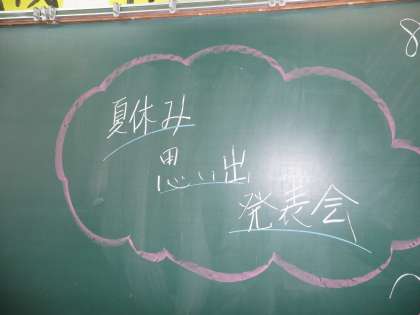 夏休み
思い出
発表会